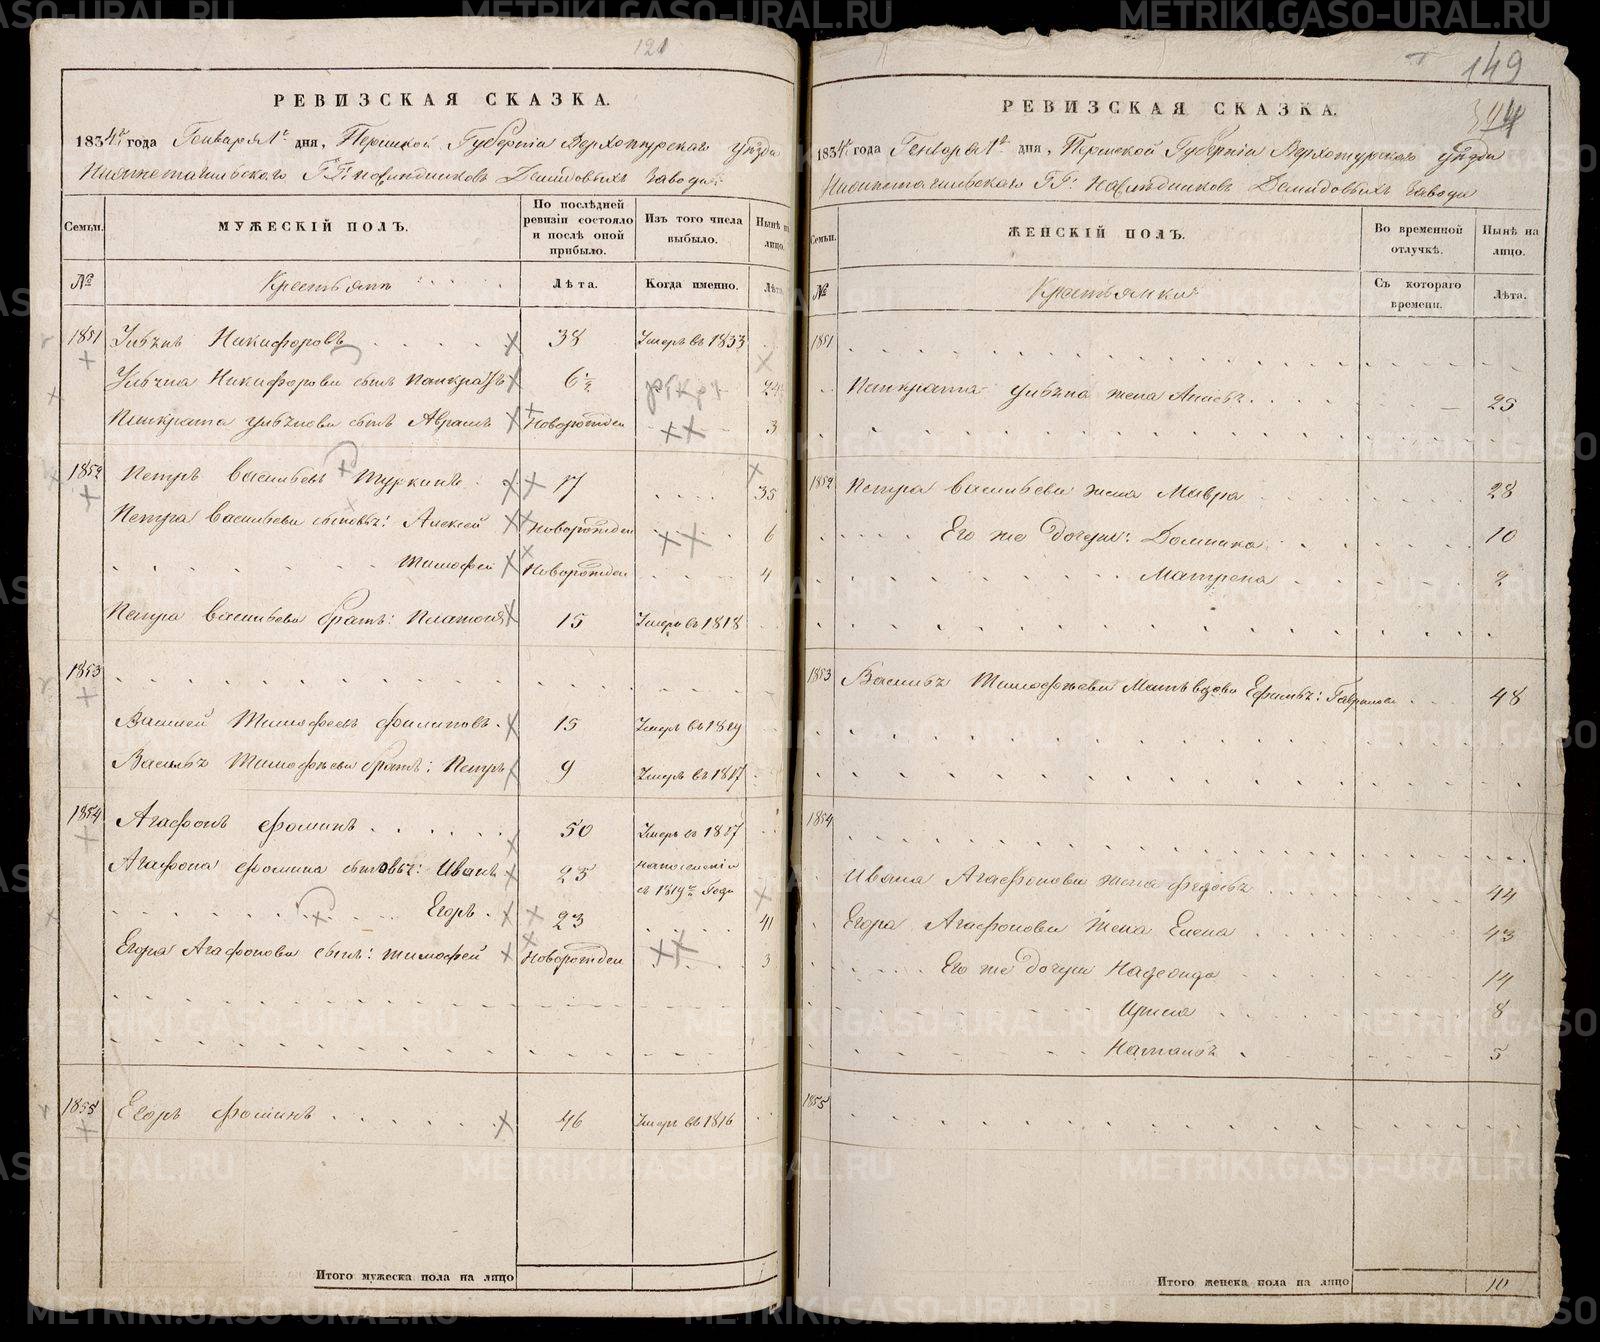 121
РЕВИЗСКАЯ СКАЗКА.
1834го года Генваря 1го дня, Пермской Губерніи Верхотурскаго уѣзда
Нижнетагильскаго Г.Г: наслѣдниковъ Демидовыхъ завода:
Семьи.
МУЖЕСКІЙ ПОЛЪ.
По послѣдней ревизіи состояло и послѣ оной прибыло.
Изъ того числа выбыло.
Нынѣ на лицо.
№
Крестьянъ
Лѣта.
Когда именно.
Лѣта.
1851
Никифоровъ
38
Умеръ въ 1833
Никифорова сынъ Панкратъ
6½
24½
Панкрата сынъ Авраамъ
Новорожден
3
1852
Петръ Васильевъ Туркинъ
17
35
Петра Васильева сыновья: Алексей
Новорожден
6
Тимофей
Новорожден
4
Петра Васильева братъ: Платонъ
15
Умеръ въ 1818
1853
Василей Тимофеевъ Филиповъ
15
Умеръ въ 1819
Василья Тимофѣева братъ: Петръ
9
Умеръ въ 1817
1854
Агафонъ Фоминъ
50
Умеръ въ 1817
Агафона Фомина сыновья: Иванъ
25
на поселеніи
съ 1819го Года
Егоръ
23
41
Егора Агафонова сынъ: Тимофей
Новорожден
3
1855
Егоръ Фоминъ
46
Умеръ въ 1816
Итого мужеска пола на лицо
149
РЕВИЗСКАЯ СКАЗКА.
1834го года Генваря 1го дня, Пермской Губерніи Верхотурскаго уѣзда
Нижнетагильскаго Г.Г: Наслѣдниковъ Демидовыхъ Завода
Семьи.
ЖЕНСКІЙ ПОЛЪ.
Во временной отлучкѣ.
Нынѣ на лицо.
№
Крестьянки
Съ котораго времени.
Лѣта.
1851
Панкрата жена Анисья
25
1852
Петра Васильева жена Мавра
28
Его же дочери: Домника
10
Матрена
2
1853
Василья Тимофѣева Мать вдова Ефимья: Гаврилова
48
1854
Ивана Агафонова жена Федосья
44
Егора Агафонова жена Елена
43
Его же дочери Надежда
14
Ирина
8
Наталья
5
1855
Итого женска пола на лицо
10
METRIKI.GASO-URAL.RU